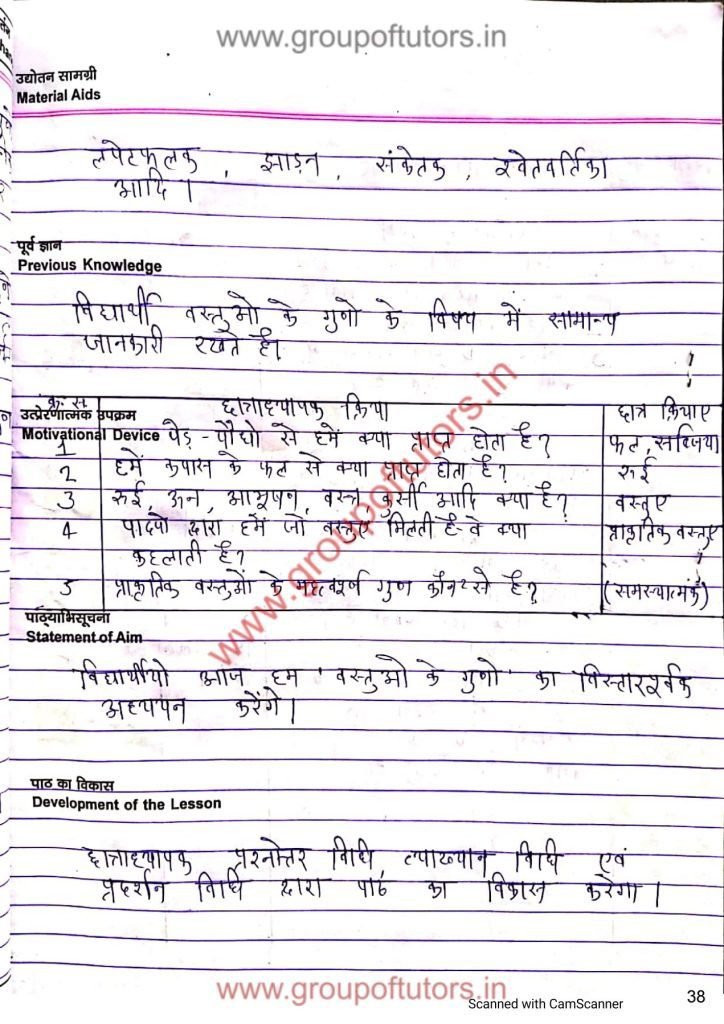 www.groupoftutors.in
उद्योतन सामग्री
Material Aids
लपेटफलक , झाड़न , संकेतक , श्वेतवर्तिका
आदि ।
पूर्व ज्ञान
Previous Knowledge
विद्यार्थी वस्तुओ के गुणो के विषय में सामान्य
जानकारी रखते है।
क्र. स छात्राध्यापक क्रिया छात्र क्रियाए
उत्प्रेरणात्मक उपक्रम
Motivational Device
1 पेड़ - पौधो से हमें क्या प्राप्त होता है? फल, सब्जिया
2 हमें कपास के फल से क्या प्राप्त होता है? रूई
3 रूई, ऊन, आभूषन, वस्त्र, कुर्सी आदि क्या है? वस्तुए
4 पादपो द्वारा हमें जो वस्तुए मिलती है- वे क्या प्राकृतिक वस्तुए
कहलाती है?
5 प्राकृतिक वस्तुओं के महत्वपूर्ण गुण कौन२ से है? (समस्यात्मक)
पाठ्याभिसूचना
Statement of Aim
विद्यार्थीयो आज हम 'वस्तुओ के गुणो' का विस्तारपूर्वक
अध्ययन करेंगे ।
पाठ का विकास
Development of the Lesson
छात्राध्यापक प्रश्नोत्तर विधि, व्याख्यान विधि एवं
प्रदर्शन विधि द्वारा पाठ का विकास करेगा ।
www.groupoftutors.in
www.groupoftutors.in
Scanned with CamScanner
38